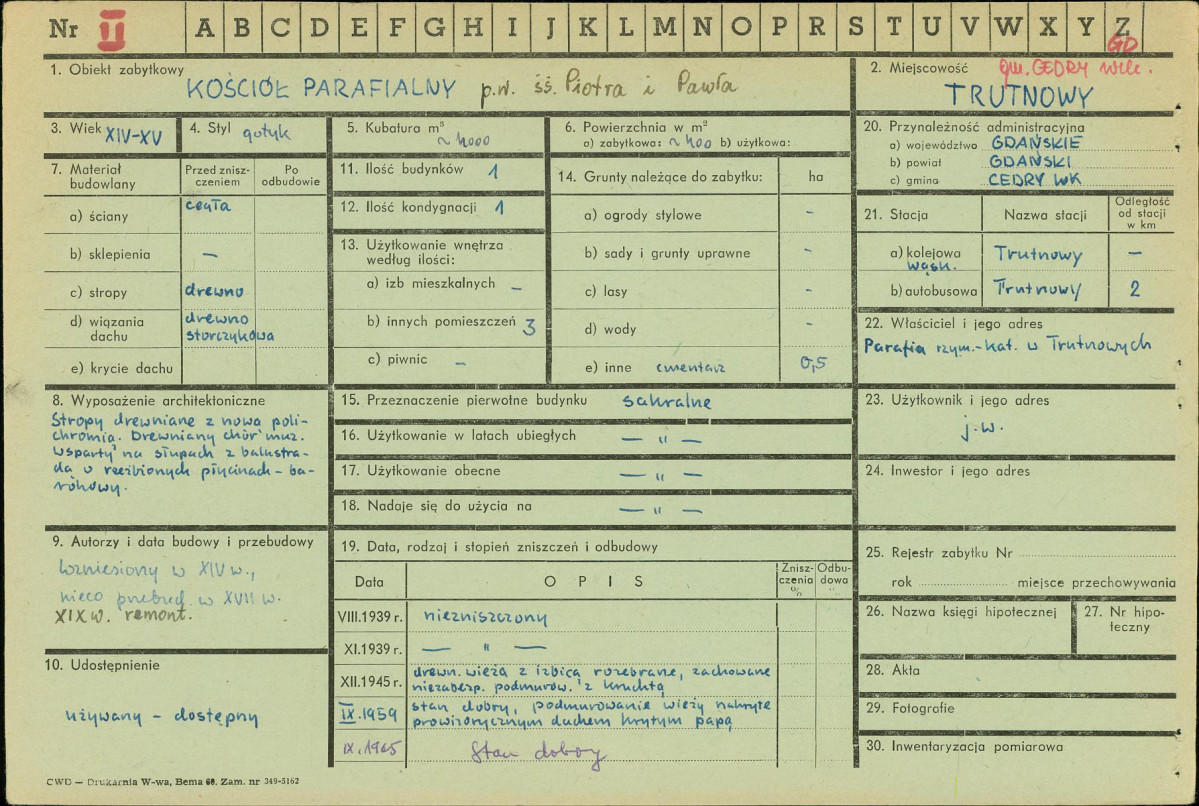 Nr II A B C D E F G H I J K L M N O P R S T U V W X Y Z
GD
1. Obiekt zabytkowy
KOŚCIÓŁ PARAFIALNY p.w. śś. Piotra i Pawła
2. Miejscowość gm. CEDRY Wlk.
TRUTNOWY
3. Wiek XIV-XV
4. Styl gotyk
5. Kubatura m³
~ 4000
6. Powierzchnia w m²
a) zabytkowa: ~ 400 b) użytkowa:
20. Przynależność administracyjna
a) województwo GDAŃSKIE
b) powiat GDAŃSKI
c) gmina CEDRY WK
7. Materiał budowlany
Przed zniszczeniem
Po odbudowie
a) ściany cegła
b) sklepienia —
c) stropy drewno
d) wiązania dachu drewno storczykowa
e) krycie dachu
11. Ilość budynków 1
12. Ilość kondygnacji 1
13. Użytkowanie wnętrza
według ilości:
a) izb mieszkalnych –
b) innych pomieszczeń 3
c) piwnic –
14. Grunty należące do zabytku: ha
a) ogrody stylowe –
b) sady i grunty uprawne –
c) lasy –
d) wody –
e) inne cmentarz 0,5
21. Stacja Nazwa stacji Odległość od stacji w km
a) kolejowa wąsk. Trutnowy —
b) autobusowa Trutnowy 2
22. Właściciel i jego adres
Parafia rzym.-kat. w Trutnowych
8. Wyposażenie architektoniczne
Stropy drewniane z nową poli-
chromią. Drewniany chór muz.
wsparty na słupach z balustra-
dą o rzeźbionych płycinach - ba-
rokowy.
15. Przeznaczenie pierwotne budynku sakralne
16. Użytkowanie w latach ubiegłych — " —
17. Użytkowanie obecne — " —
18. Nadaje się do użycia na — " —
23. Użytkownik i jego adres
j.w.
24. Inwestor i jego adres
9. Autorzy i data budowy i przebudowy
Wzniesiony w XIV w.,
nieco przebud. w XVII w.
XIX w. remont.
10. Udostępnienie
używany - dostępny
19. Data, rodzaj i stopień zniszczeń i odbudowy
Data OPIS Znisz-czenia % Odbu-dowa "
VIII.1939 r. niezniszczony
XI.1939 r. — " —
XII.1945 r. drewn. wieża z izbicą rozebrane, zachowane
niezabezp. podmurów. z kruchtą
IX.1959 stan dobry, podmurowanie wieży nakryte
prowizorycznym dachem krytym papą
IX.1965 Stan dobry
25. Rejestr zabytku Nr
rok miejsce przechowywania
26. Nazwa księgi hipotecznej
27. Nr hipo-
teczny
28. Akta
29. Fotografie
30. Inwentaryzacja pomiarowa
CWD — Drukarnia W-wa, Bema 60. Zam. nr 349-5162